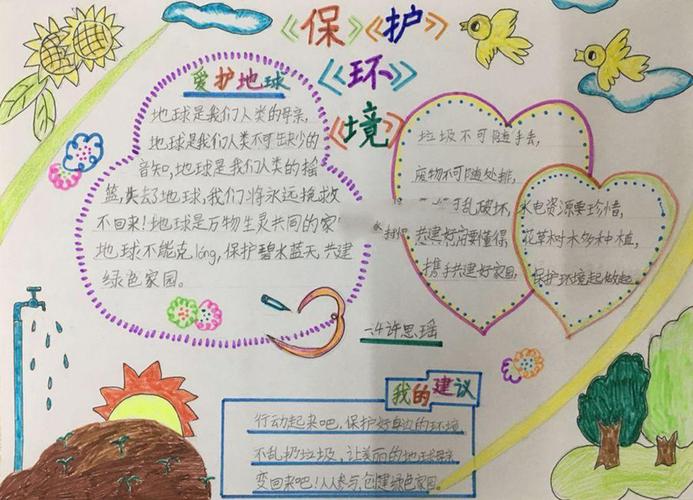 《保》《护》
《环》
《境》
爱护地球
地球是我们人类的母亲,
地球是我们人类不可缺少的
音知,地球是我们人类的摇
篮,失去地球,我们将永远挽救
不回来!地球是万物生灵共同的家
地球不能克lóng,保护碧水蓝天 共建
绿色家园。
垃圾不可随手丢,
废物不可随处排,
可乱破坏,
共建好家要懂得,
携手共建好家园,
水电资源要珍惜,
花草树木多种植,
保护环境起做起。
一4许思瑶
我的建议
行动起来吧,保护好身边的环境
不乱扔垃圾,让美丽的地球母亲
变回来吧!人人参与,创建绿色家园。